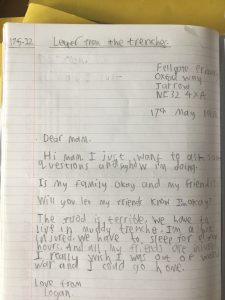 17-5-22 Letter from the trenches
Fellgate Primary
Oxford Way
Jarrow
NE32 4XA
17th May
Dear mam,
Hi mam I just want to ask some
questions and show how i'm doing.
Is my family okay and my friends?
Will you let my friends know I'm okay?
The food is terrible, we have to
live in muddy trenche. I'm a bit
injured. we have to sleep for
hours. And all my friends are injured
I really wish I was out of world
war and I could go home.
Love from
Logan.